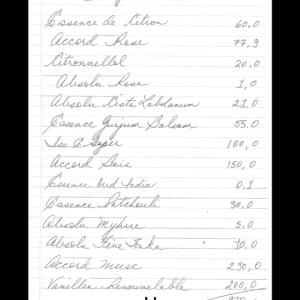 Essence de Citron 60,0
Accord Rose 77,9
Citronnellol 20,0
Absolu Rose 1,0
Absolu Ciste Labdanum 21.0
Essence Gurjum Balsam 55.0
Iso E Super 100,0
Accord Soie 150,0
Essence Oud India 0.1
Essence Patchouli 30.0
Absolu Myrrhe 5.0
Absolu Fève Tonka 10.0
Accord Musc 230,0
Vanillia Renouvelable 200,0